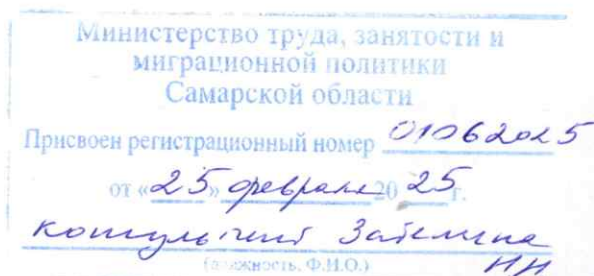 Министерство труда, занятости и
миграционной политики
Самарской области
Присвоен регистрационный номер 01062025
от «25» февраля 2025 г.
консультант Забелина
НН
(должность, Ф.И.О.)